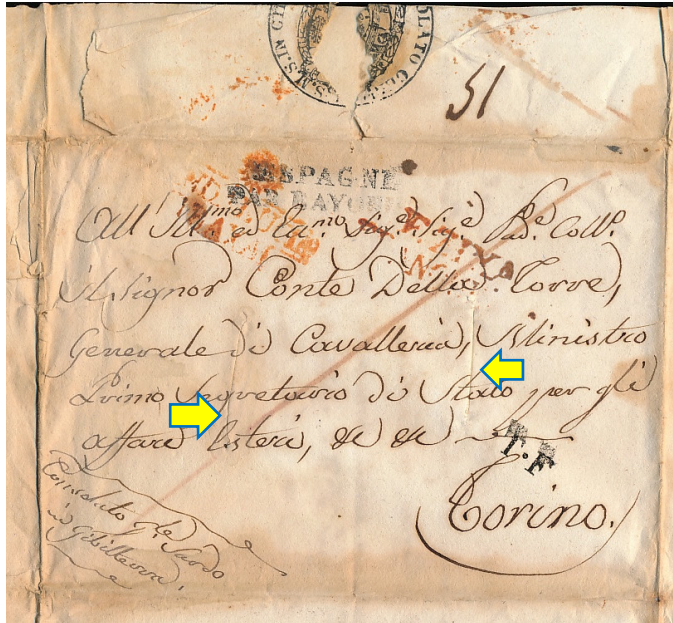 S.M.S. IN GI
OLATO GE
51
ESPAGNE
PAR BAYONNE
All' Ill.mo ed Ecc.mo Sig.e Sig.e P.ne Coll.mo
il Signor Conte Della Torre,
Generale di Cavalleria, Ministro
Primo Segretario di Stato per gli
affari Esteri, &c &c
T.F
Torino.
Consolato G.le Sardo
in Gibilterra.